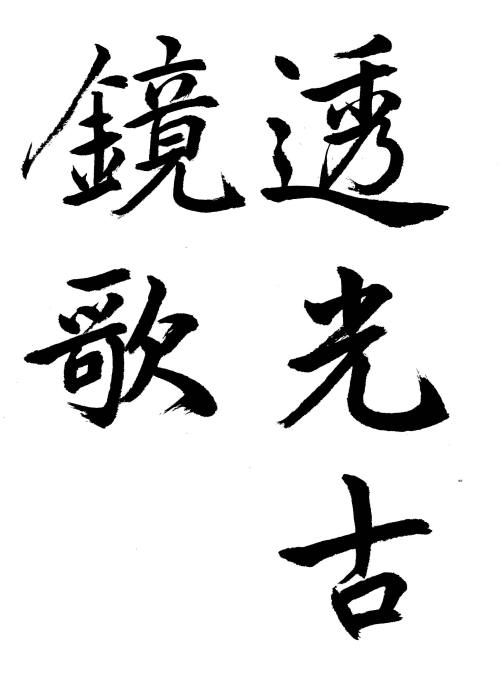 透光古
鏡歌